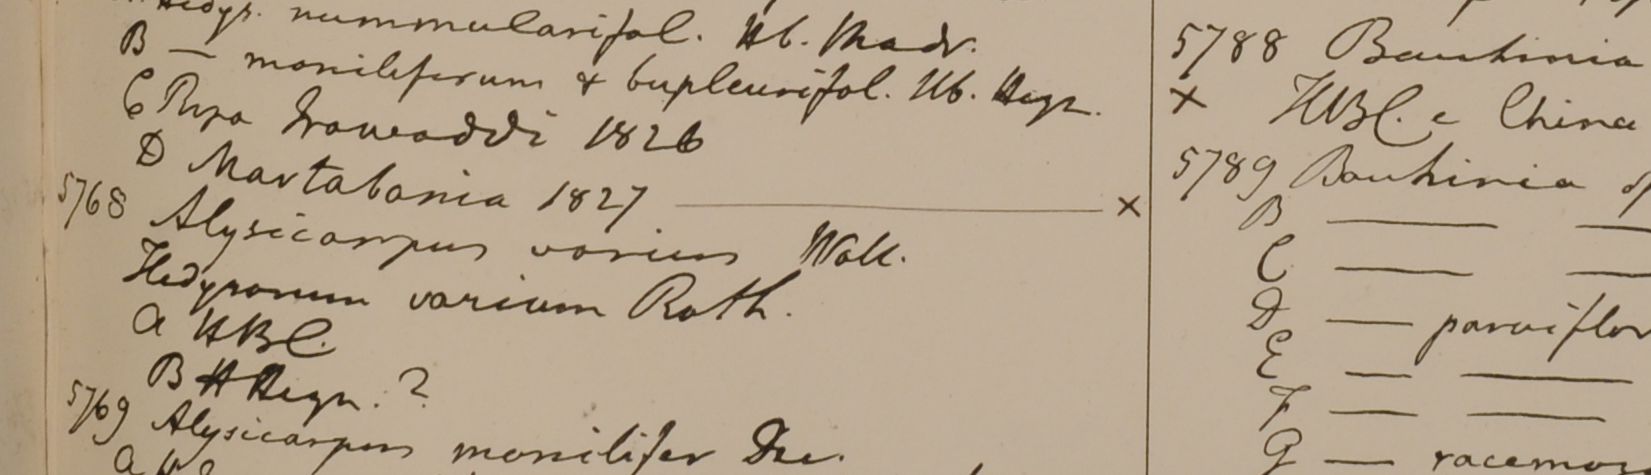 Hedys. nummularifol. Hb. Madr.
B — moniliferum & bupleurifol. Hb. Heyn.
C Ripa Irawaddi 1826
D Martabania 1827 — ×
5768 Alysicarpus varius Wall.
Hedysarum varium Roth.
a HBC.
B H Heyn. ?
5769 Alysicarpus monilifer Dec.
a
5788 Bauhinia
× HBC. e China
5789 Bauhinia
B — —
C — —
D — parviflor
E — —
F — —
G — racemos